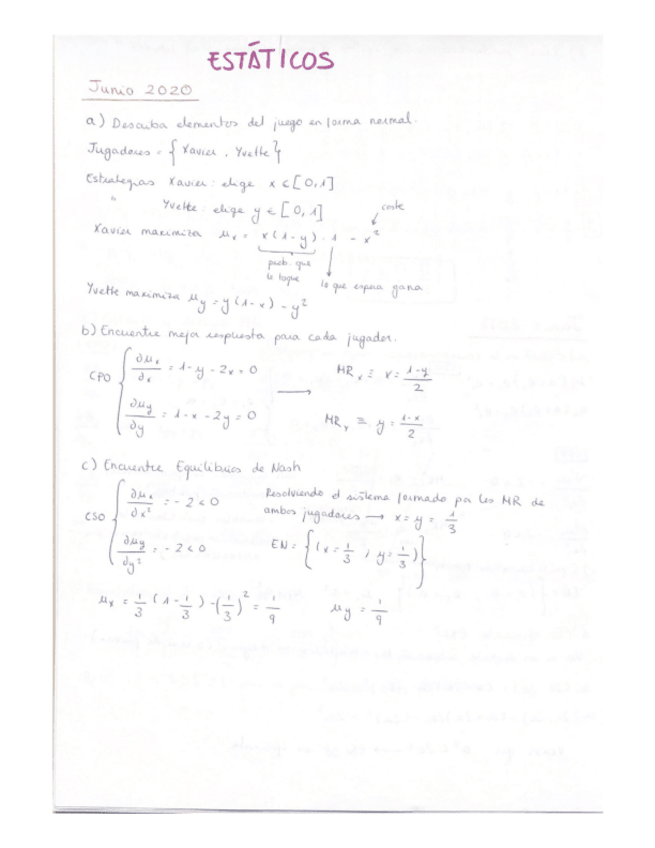 ESTÁTICOS
Junio 2020
a) Describa elementos del juego en forma normal.
Jugadores = { Xavier, Yvette }
Estrategias Xavier: elige x ∈ [0,1]
" Yvette: elige y ∈ [0,1]
coste
Xavier maximiza μx = x(1-y) · 1 - x²
prob. que le toque
lo que espera ganar
Yvette maximiza μy = y(1-x) - y²
b) Encuentre mejor respuesta para cada jugador.
CPO { ∂μx/∂x = 1-y-2x = 0 → MRx ≡ x = (1-y)/2
∂μy/∂y = 1-x-2y = 0 MRy ≡ y = (1-x)/2
c) Encuentre Equilibrios de Nash
CSO { ∂μx/∂x² = -2 < 0 Resolviendo el sistema formado por las MR de
ambos jugadores → x = y = 1/3
∂μy/∂y² = -2 < 0 EN = { (x = 1/3, y = 1/3) }
μx = 1/3 (1 - 1/3) - (1/3)² = 1/9 μy = 1/9